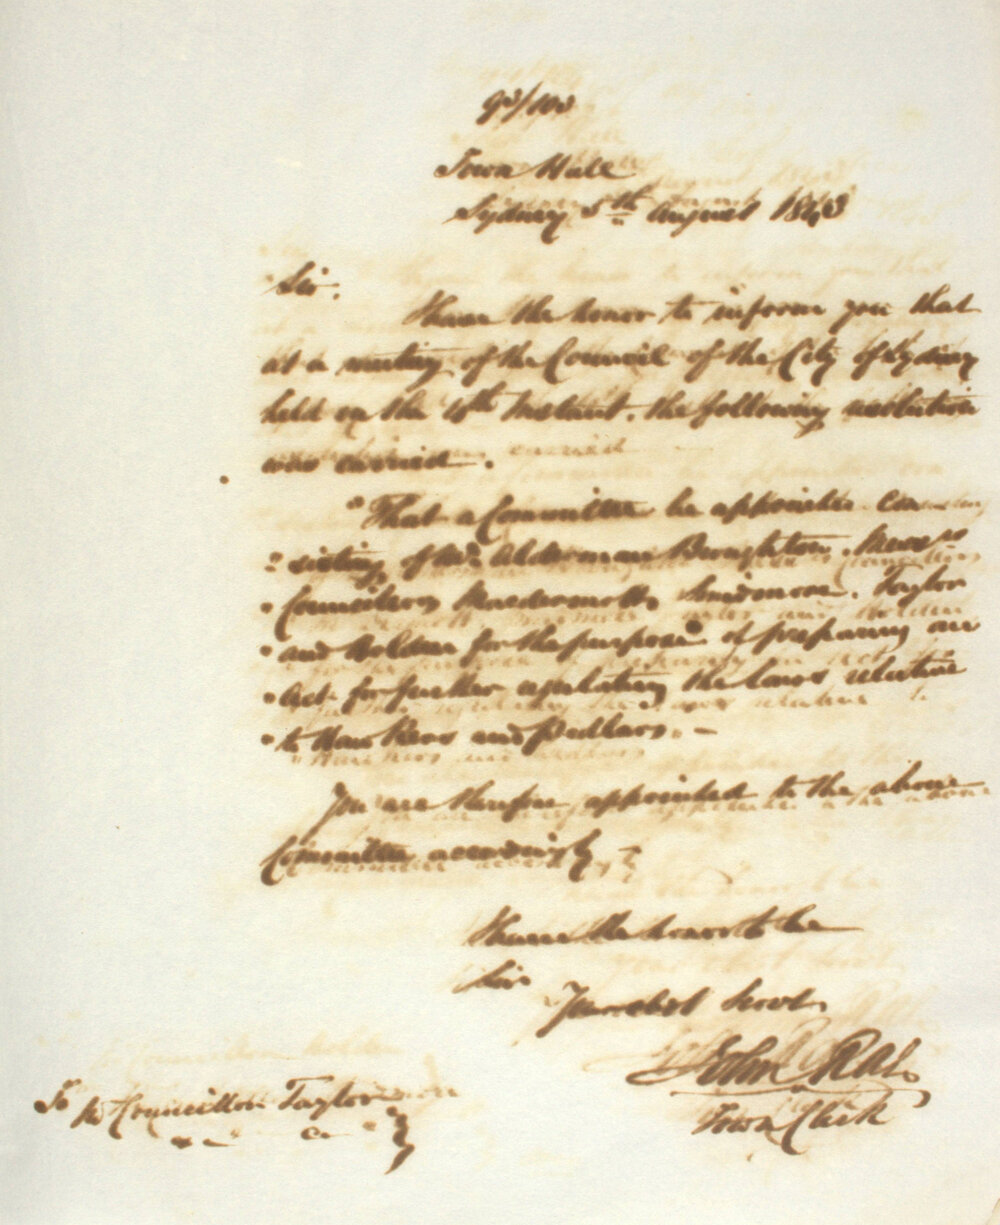 93/103
Town Hall
Sydney 5th August 1843
Sir.
I have the honor to inform you that
at a meeting of the Council of the City of Sydney
held on the 4th Instant, the following resolution
was carried.
"That a Committee be appointed con
"sisting of Mr Alderman Broughton, Messrs
"Councillors Macdermott, Smidmore, Taylor
"and Holden for the purpose of preparing an
"Act for further regulating the laws relative
"to Hawkers and Pedlars. –
You are therefore appointed to the above
Committee accordingly
I have the honor to be
Sir
Your obdt Servt.
John Rae
Town Clerk
To Councillor Taylor